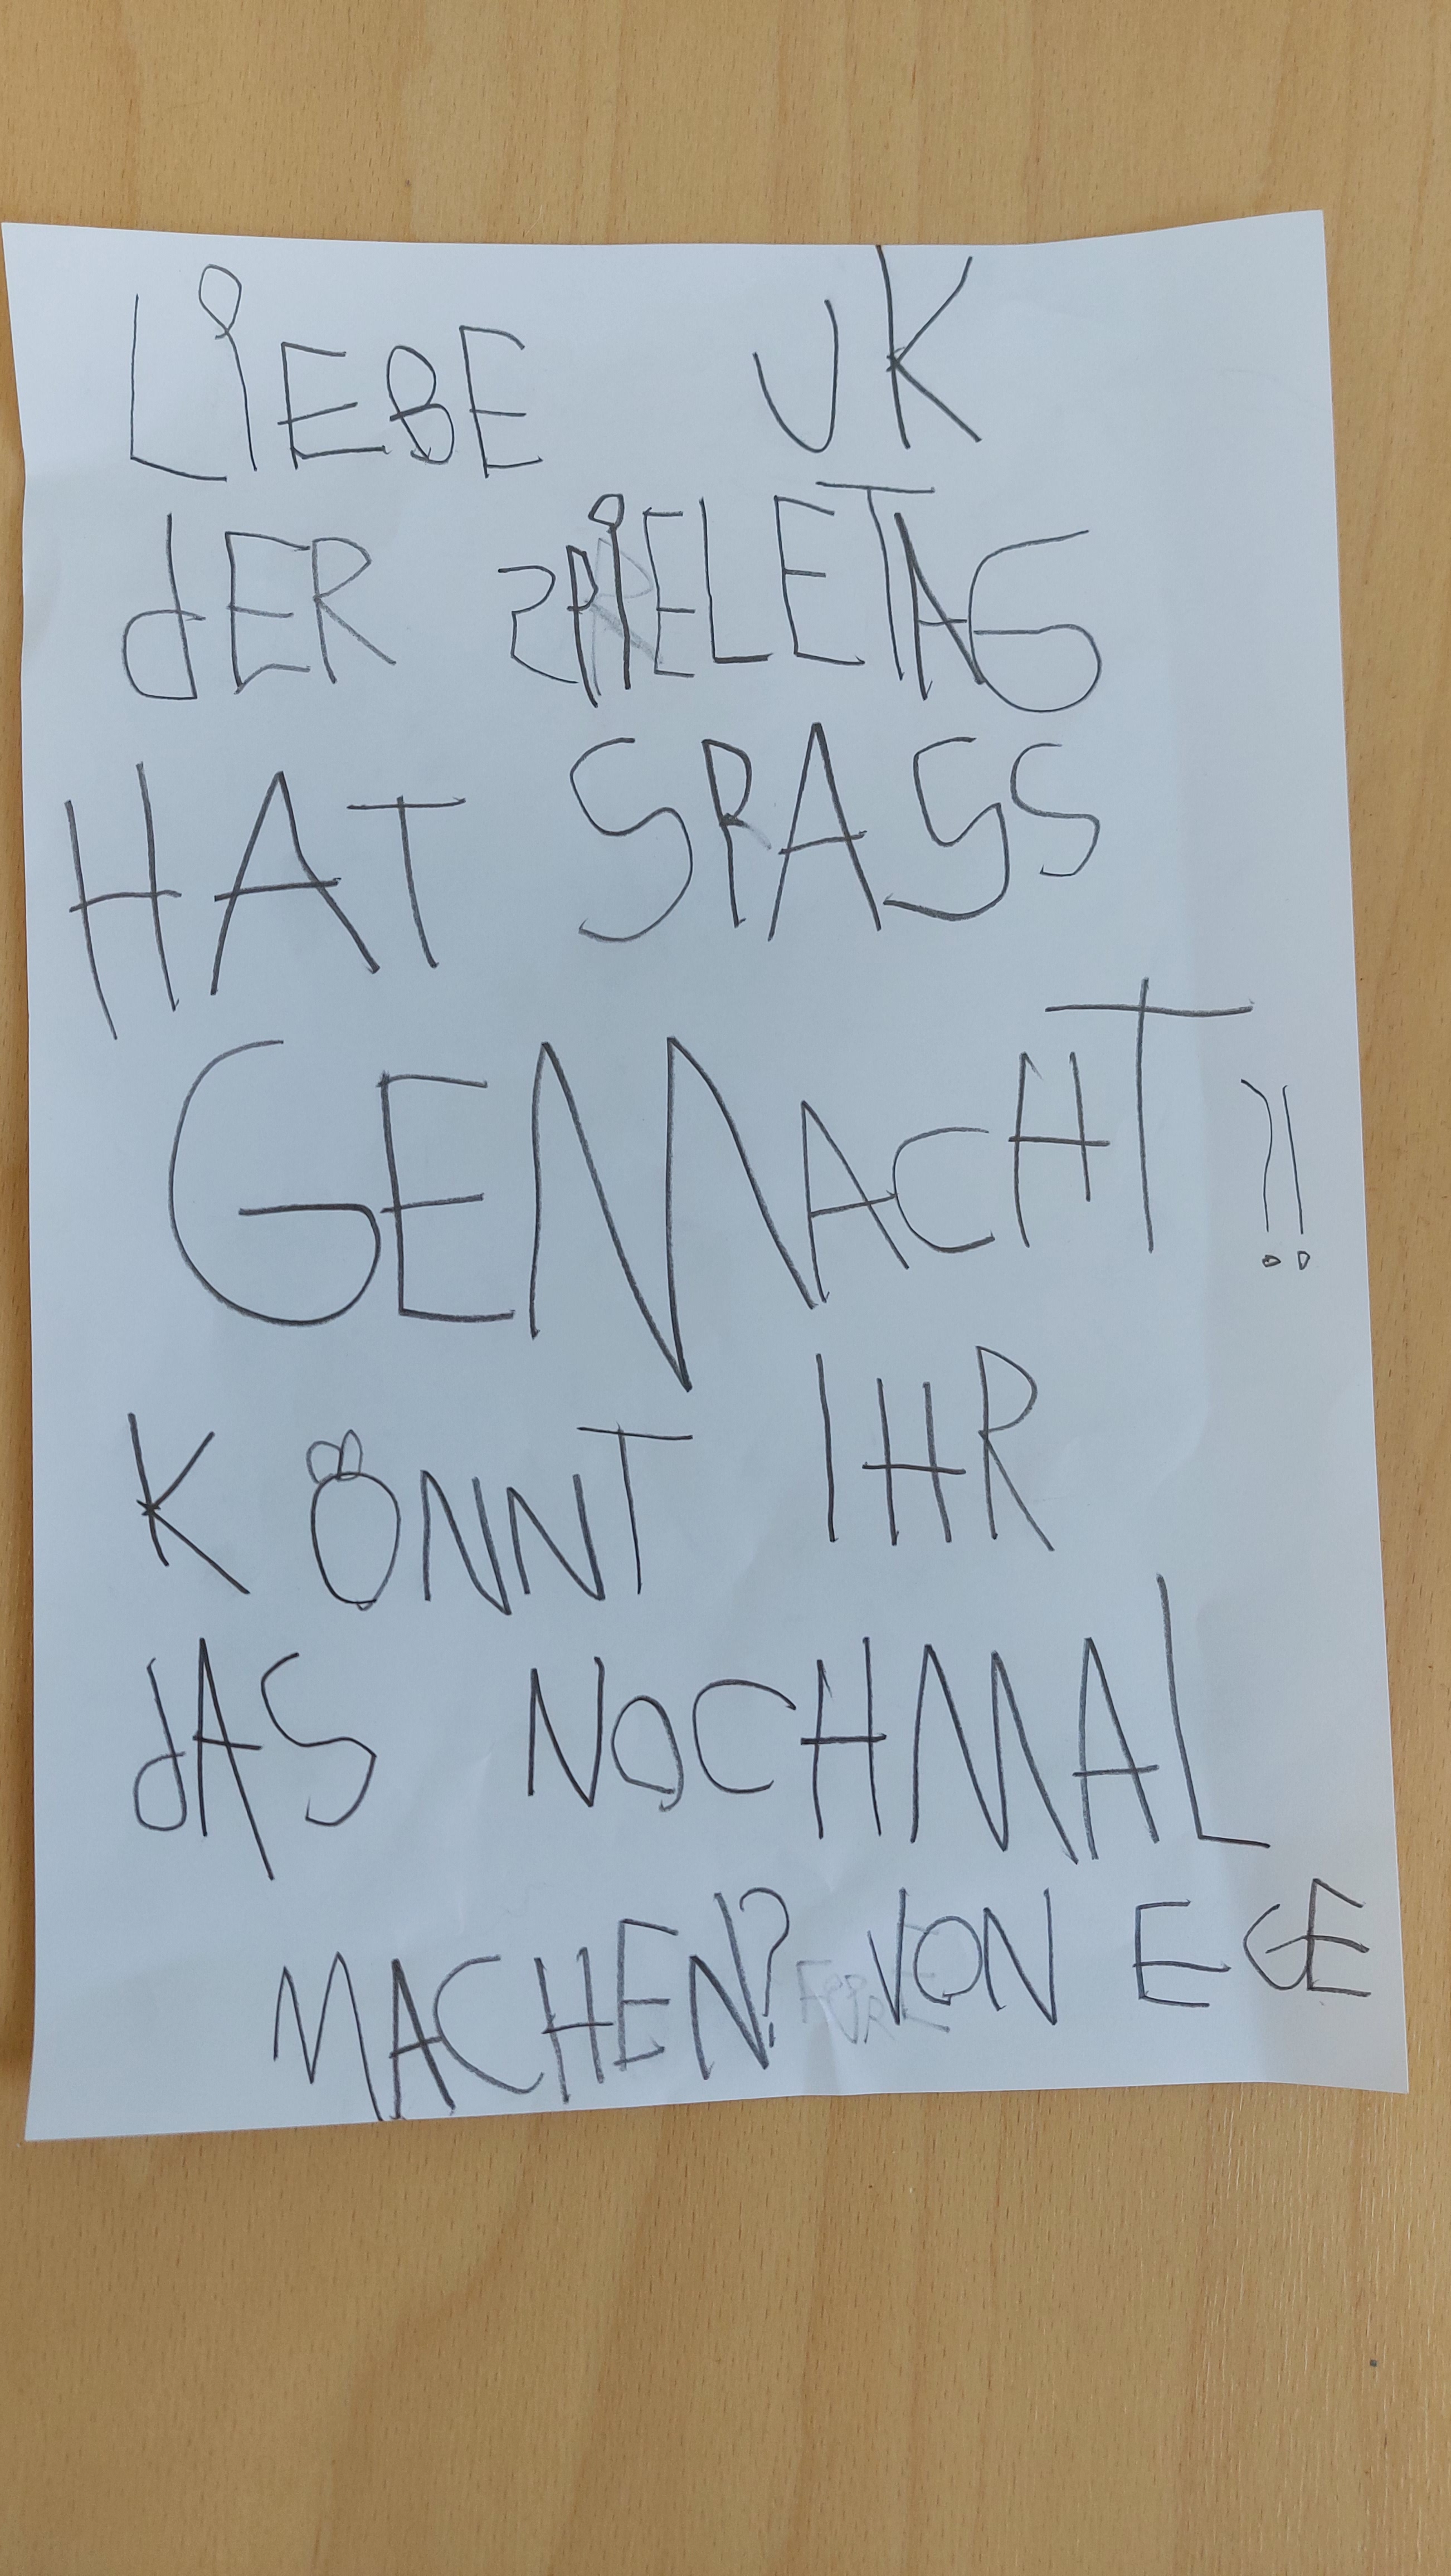 LiEBE JK
dER SPiELETAG
HAT SPASS
GEMACHT!!
KÖNNT IHR
dAS NOCHMAL
MACHEN? VON EGE